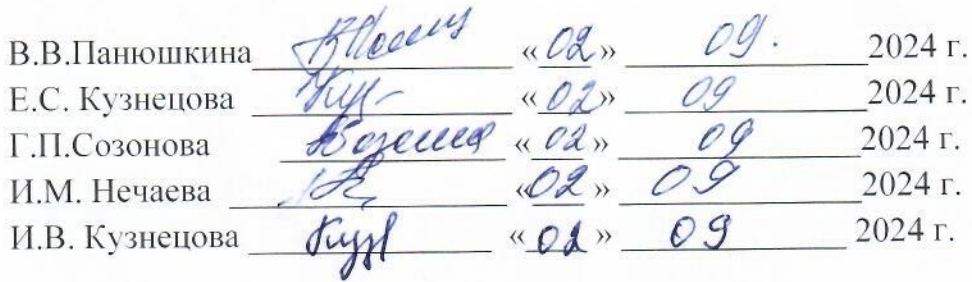 В.В.Панюшкина «02» 09. 2024 г.
Е.С. Кузнецова «02» 09 2024 г.
Г.П.Созонова «02» 09 2024 г.
И.М. Нечаева «02» 09 2024 г.
И.В. Кузнецова «02» 09 2024 г.